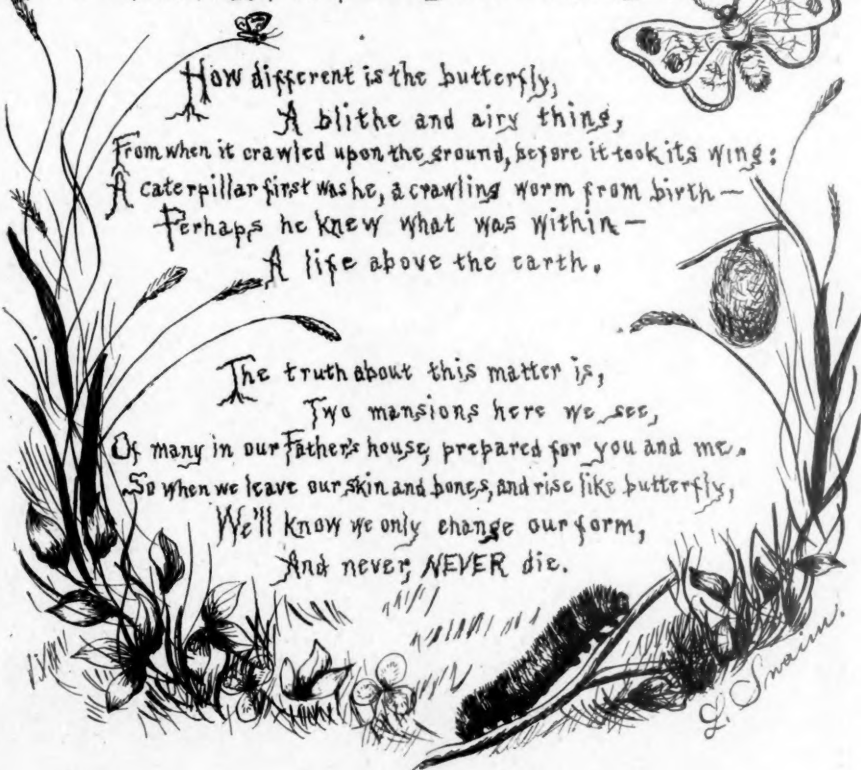 How different is the butterfly,
A blithe and airy thing,
From when it crawled upon the ground, before it took its wing:
A caterpillar first was he, a crawling worm from birth—
Perhaps he knew what was within—
A life above the earth.
The truth about this matter is,
Two mansions here we see,
Of many in our Father's house, prepared for you and me.
So when we leave our skin and bones, and rise like butterfly,
We'll know we only change our form,
And never, NEVER die.
L. Swaim.